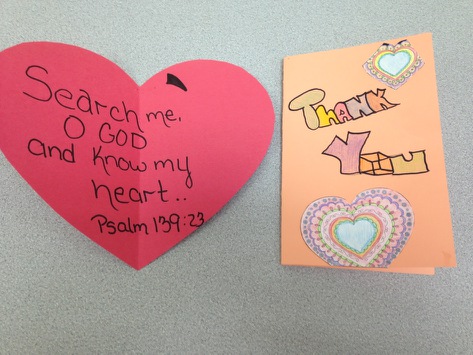 Search me,
O GOD
and know my
heart..
Psalm 139:23
THANK
YOU